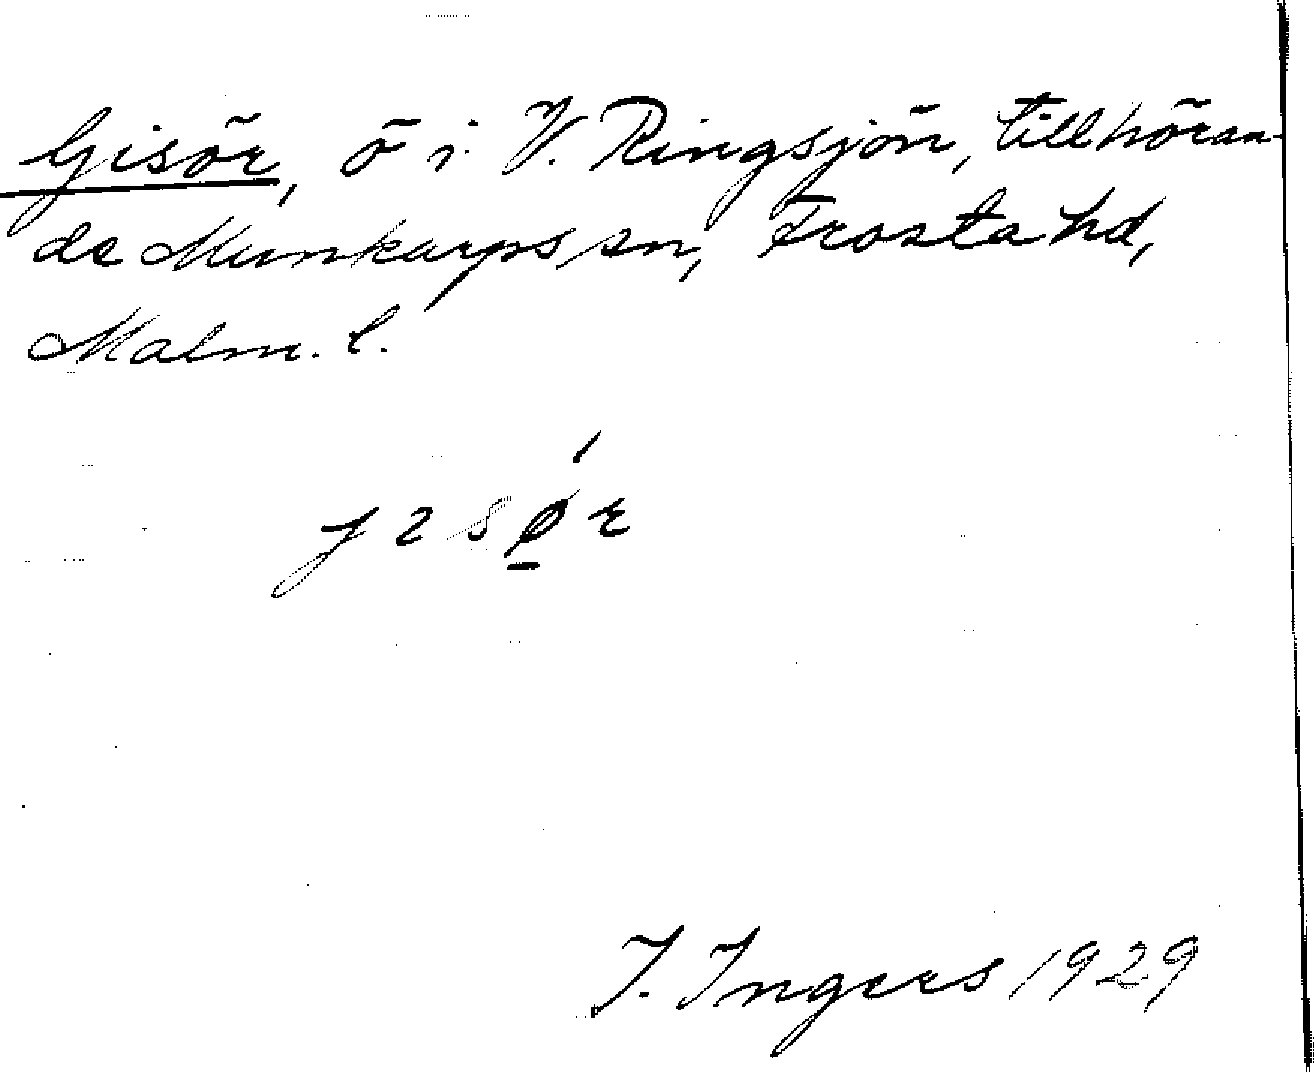 Gisör, ö i V. Ringsjön, tillhöran-
de Munkarps sn, Frosta hd,
Malm. l.
I. Ingers 1929